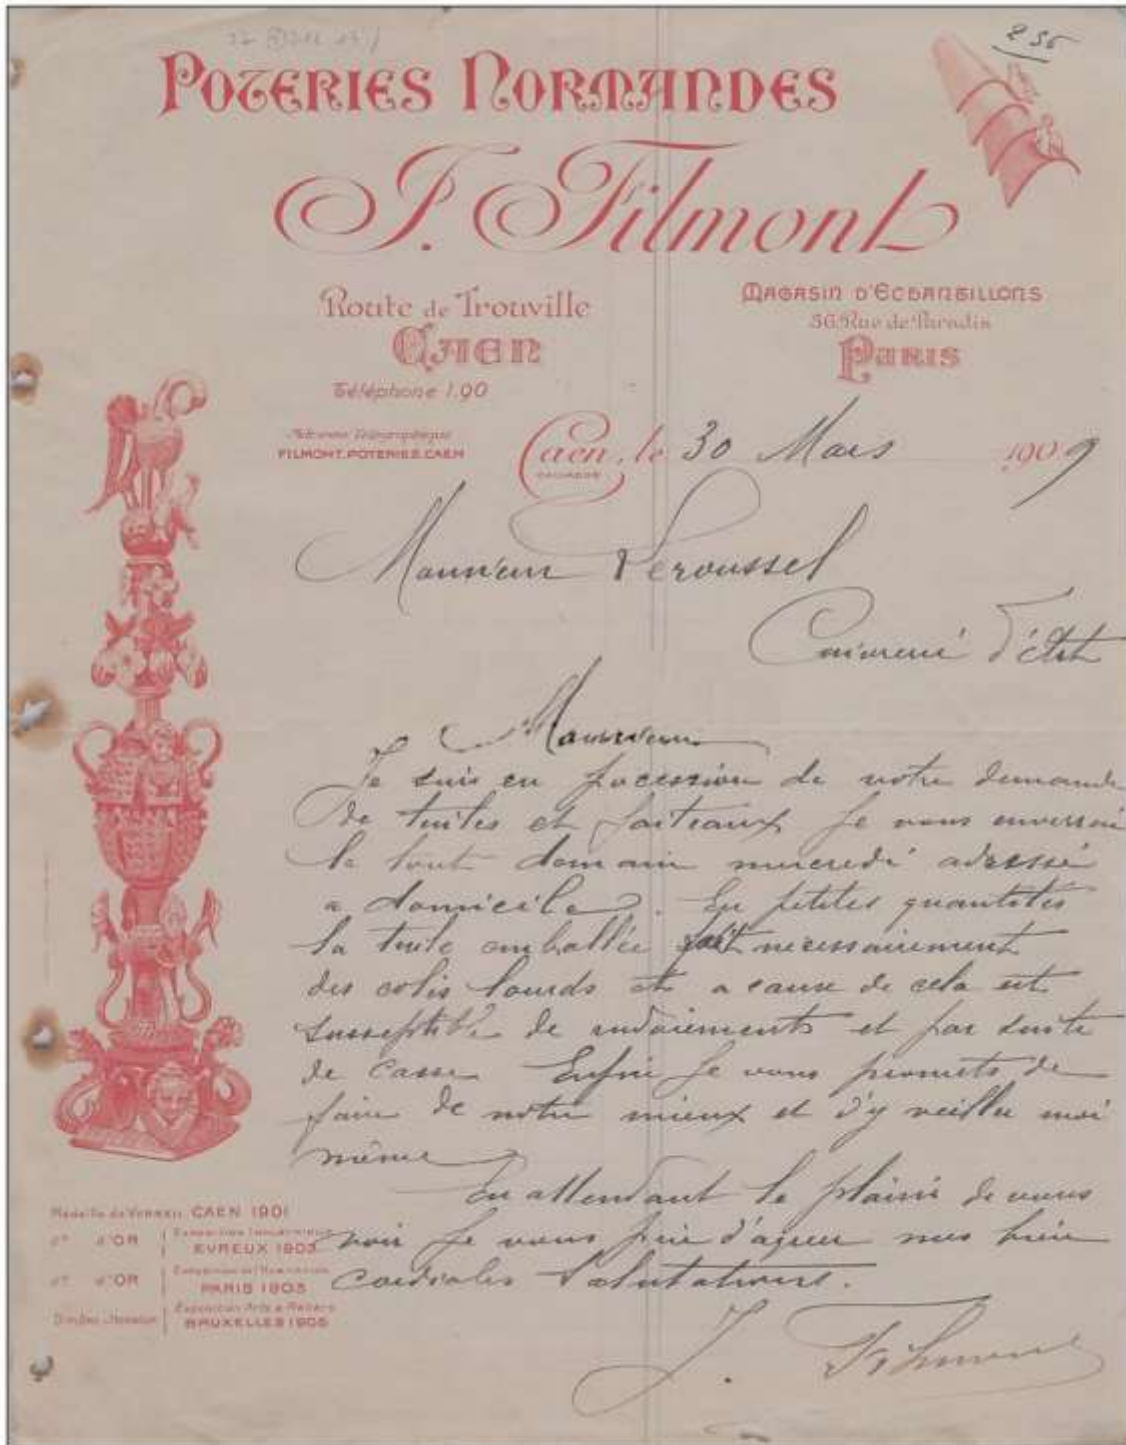 256
POTERIES NORMANDES
J. Filmont
Route de Trouville
CAEN
Téléphone 1.90
MAGASIN D'ECHANTILLONS
36 Rue de Paradis
PARIS
Adresse Télégraphique
FILMONT.POTERIES.CAEN
Caen, le 30 Mars 1909
CALVADOS
Monsieur Leroussel
d'Etat
Monsieur
Je suis en pocession de votre demande
de tuiles et faiteaux je vous enverrai
le tout demain mercredi adressé
a domicile. En petites quantités
la tuile emballée fait necessairement
des colis lourds et a cause de cela est
susseptible de rudoiements et par suite
de casse Enfin je vous promets de
faire de notre mieux et d'y veiller moi
même
En attendant le plaisir de vous
voir je vous prie d'agreer mes bien
cordiales salutations.
J. Filmont
Médaille de VERMEIL CAEN 1901
do d'OR EVREUX 1903
do d'OR PARIS 1903
Diplôme d'Honneur Exposition Arts & Métiers BRUXELLES 1905